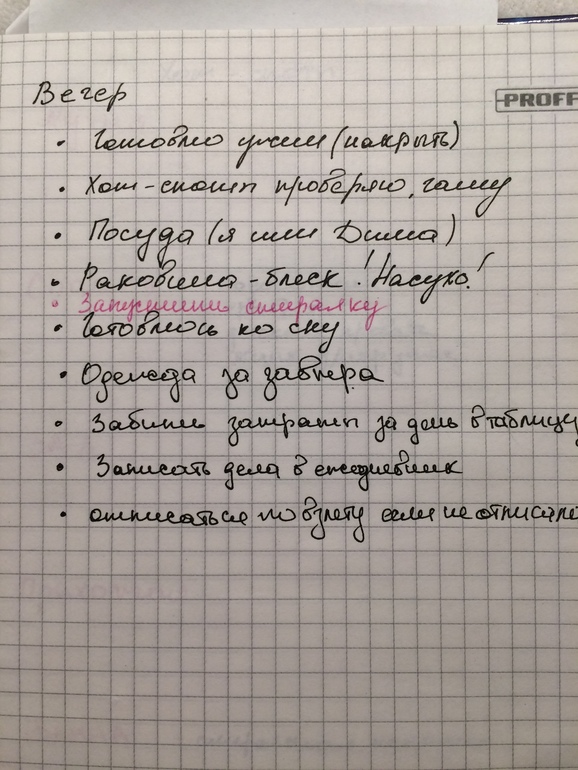 Вечер
PROFF
• Готовлю ужин (накрыть)
• Хот-споты проверяю, гашу
• Посуда (я или Дима)
• Раковина - блеск! Насухо!
• Запустить стиралку
• Готовлюсь ко сну
• Одежда за завтра
• Забить затраты за день в таблицу
• Записать дела в ежедневник
• отписаться по взлету если не